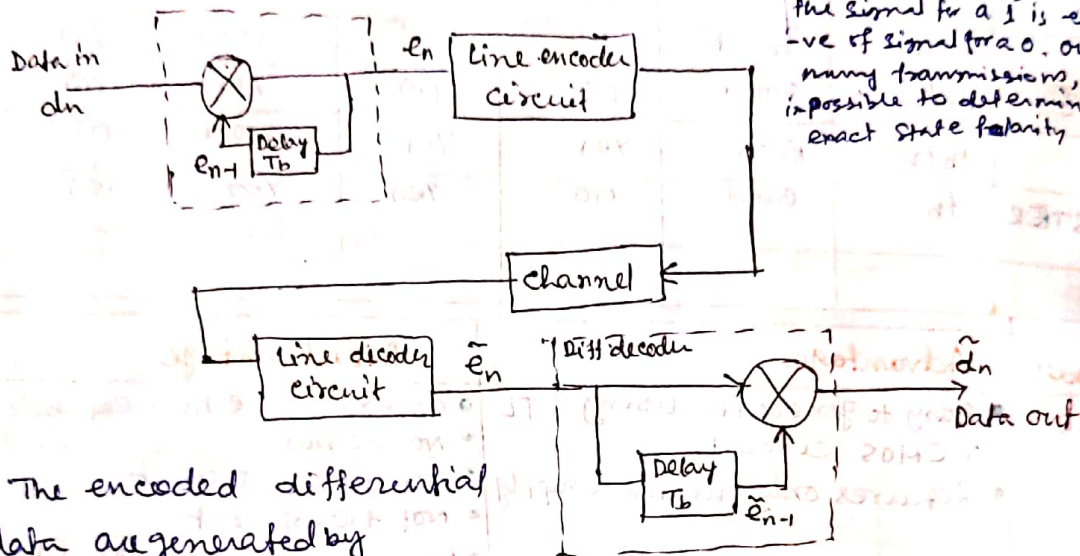 the signal for a 1 is
-ve of signal for a 0. 
many transmissions,
impossible to determin
exact state polarity
Data in
dn
en
Line encoder
circuit
Delay
Tb
en-1
channel
Line decoder
circuit
ẽn
Diff decoder
d̃n
Data out
Delay
Tb
ẽn-1
The encoded differential
data are generated by